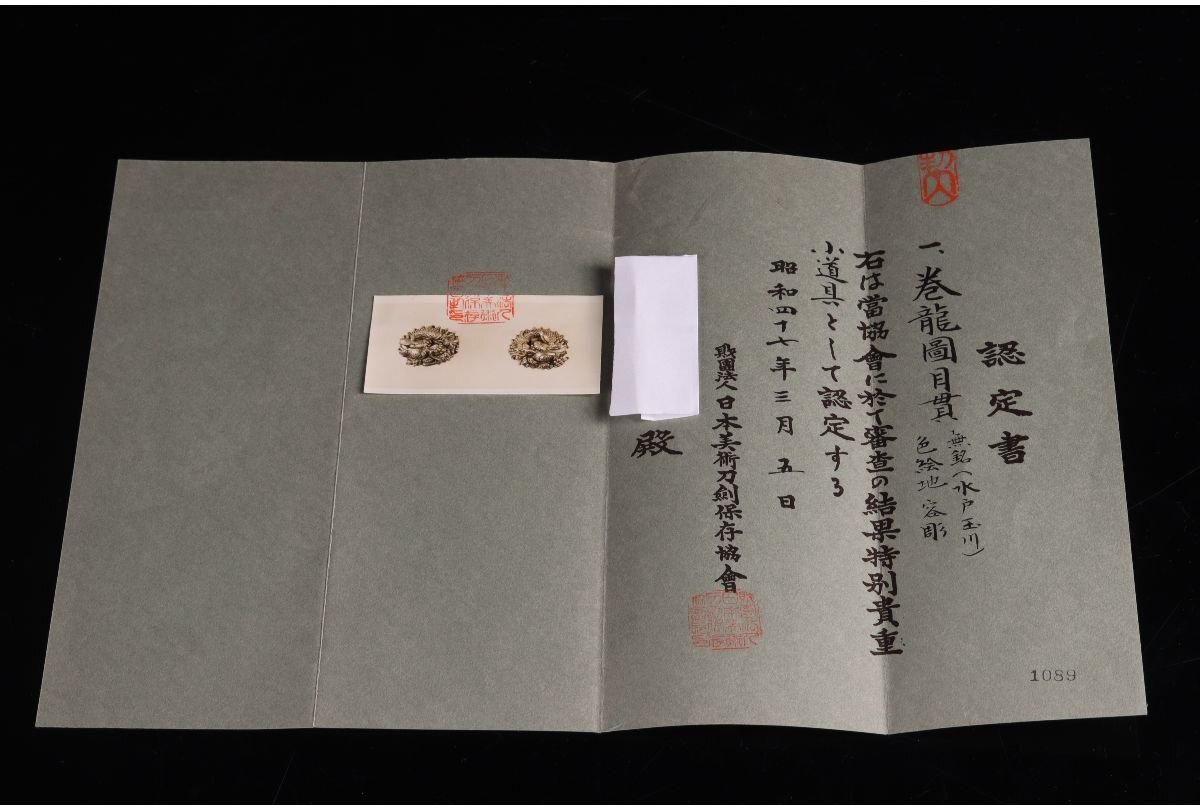 認定書
一、巻龍圖目貫
無銘(水戸玉川)
色絵地容彫
右は當協會に於て審査の結果特別貴重
小道具として認定する
昭和四十七年三月五日
財團法人日本美術刀劍保存協會
殿
1089